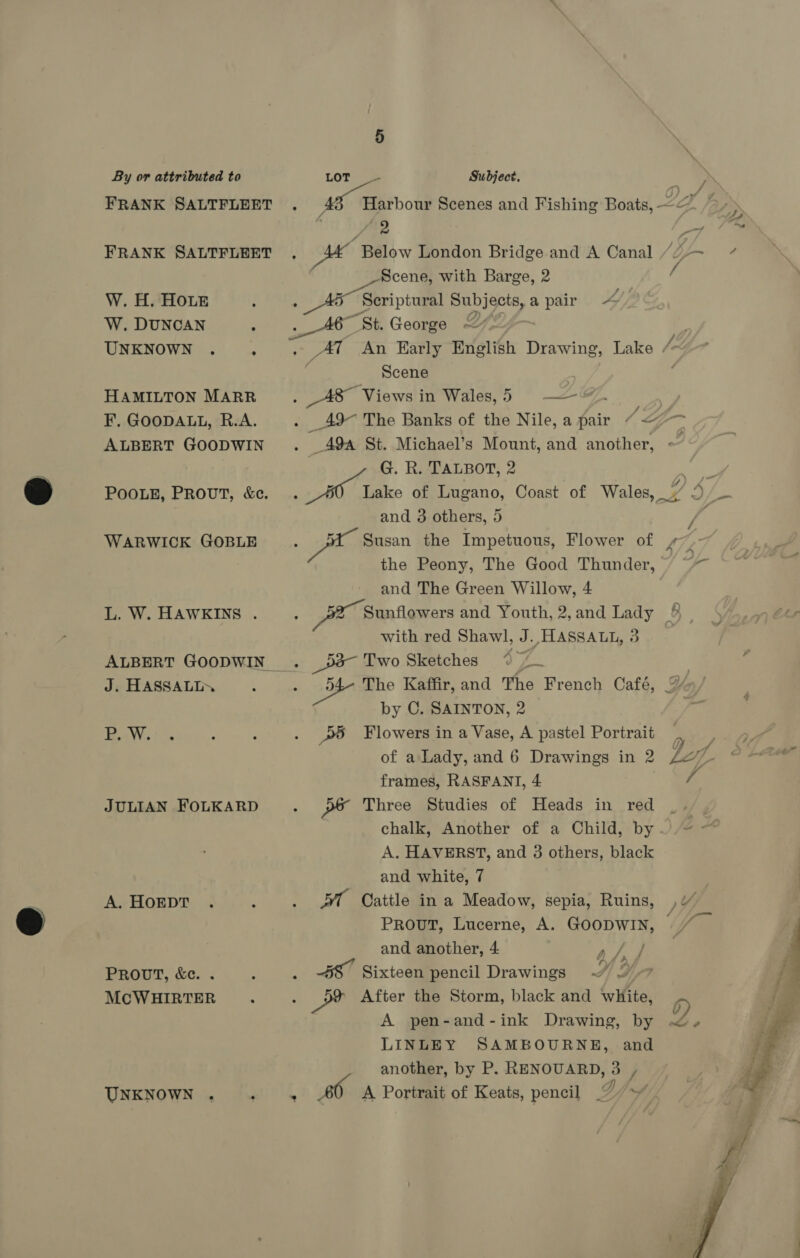 5
By or attributed to LOT Subject.
FRANK SALTFLEET . 43 Harbour Scenes and Fishing Boats,
2
FRANK SALTFLEET . 44 Below London Bridge and A Canal
Scene, with Barge, 2
W. H. HOLE . . 45 Scriptural Subjects, a pair
W. DUNCAN . . 46 St. George
UNKNOWN . . . 47 An Early English Drawing, Lake
Scene
HAMILTON MARR . 48 Views in Wales, 5
F. GOODALL, R.A. . 49 The Banks of the Nile, a pair
ALBERT GOODWIN . 49A St. Michael's Mount, and another,
G. R. TALBOT, 2
POOLE, PROUT, &c. . 50 Lake of Lugano, Coast of Wales,
and 3 others, 5
WARWICK GOBLE . 51 Susan the Impetuous, Flower of
the Peony, The Good Thunder,
and The Green Willow, 4
L. W. HAWKINS . . 52 Sunflowers and Youth, 2, and Lady
with red Shawl, J. HASSALL, 3
ALBERT GOODWIN . 53 Two Sketches
J. HASSALL . . 54 The Kaffir, and The French Café,
by C. SAINTON, 2
P. W. . . . . 55 Flowers in a Vase, A pastel Portrait
of a Lady, and 6 Drawings in 2
frames, RASFANI, 4
JULIAN FOLKARD . 56 Three Studies of Heads in red
chalk, Another of a Child, by
A. HAVERST, and 3 others, black
and white, 7
A. HOEDT . . . 57 Cattle in a Meadow, sepia, Ruins,
PROUT, Lucerne, A. GOODWIN,
and another, 4
PROUT, &c. . . . 58 Sixteen pencil Drawings
MCWHIRTER . . 59 After the Storm, black and white,
A pen-and-ink Drawing, by
LINLEY SAMBOURNE, and
another, by P. RENOUARD, 3
UNKNOWN . . . 60 A Portrait of Keats, pencil